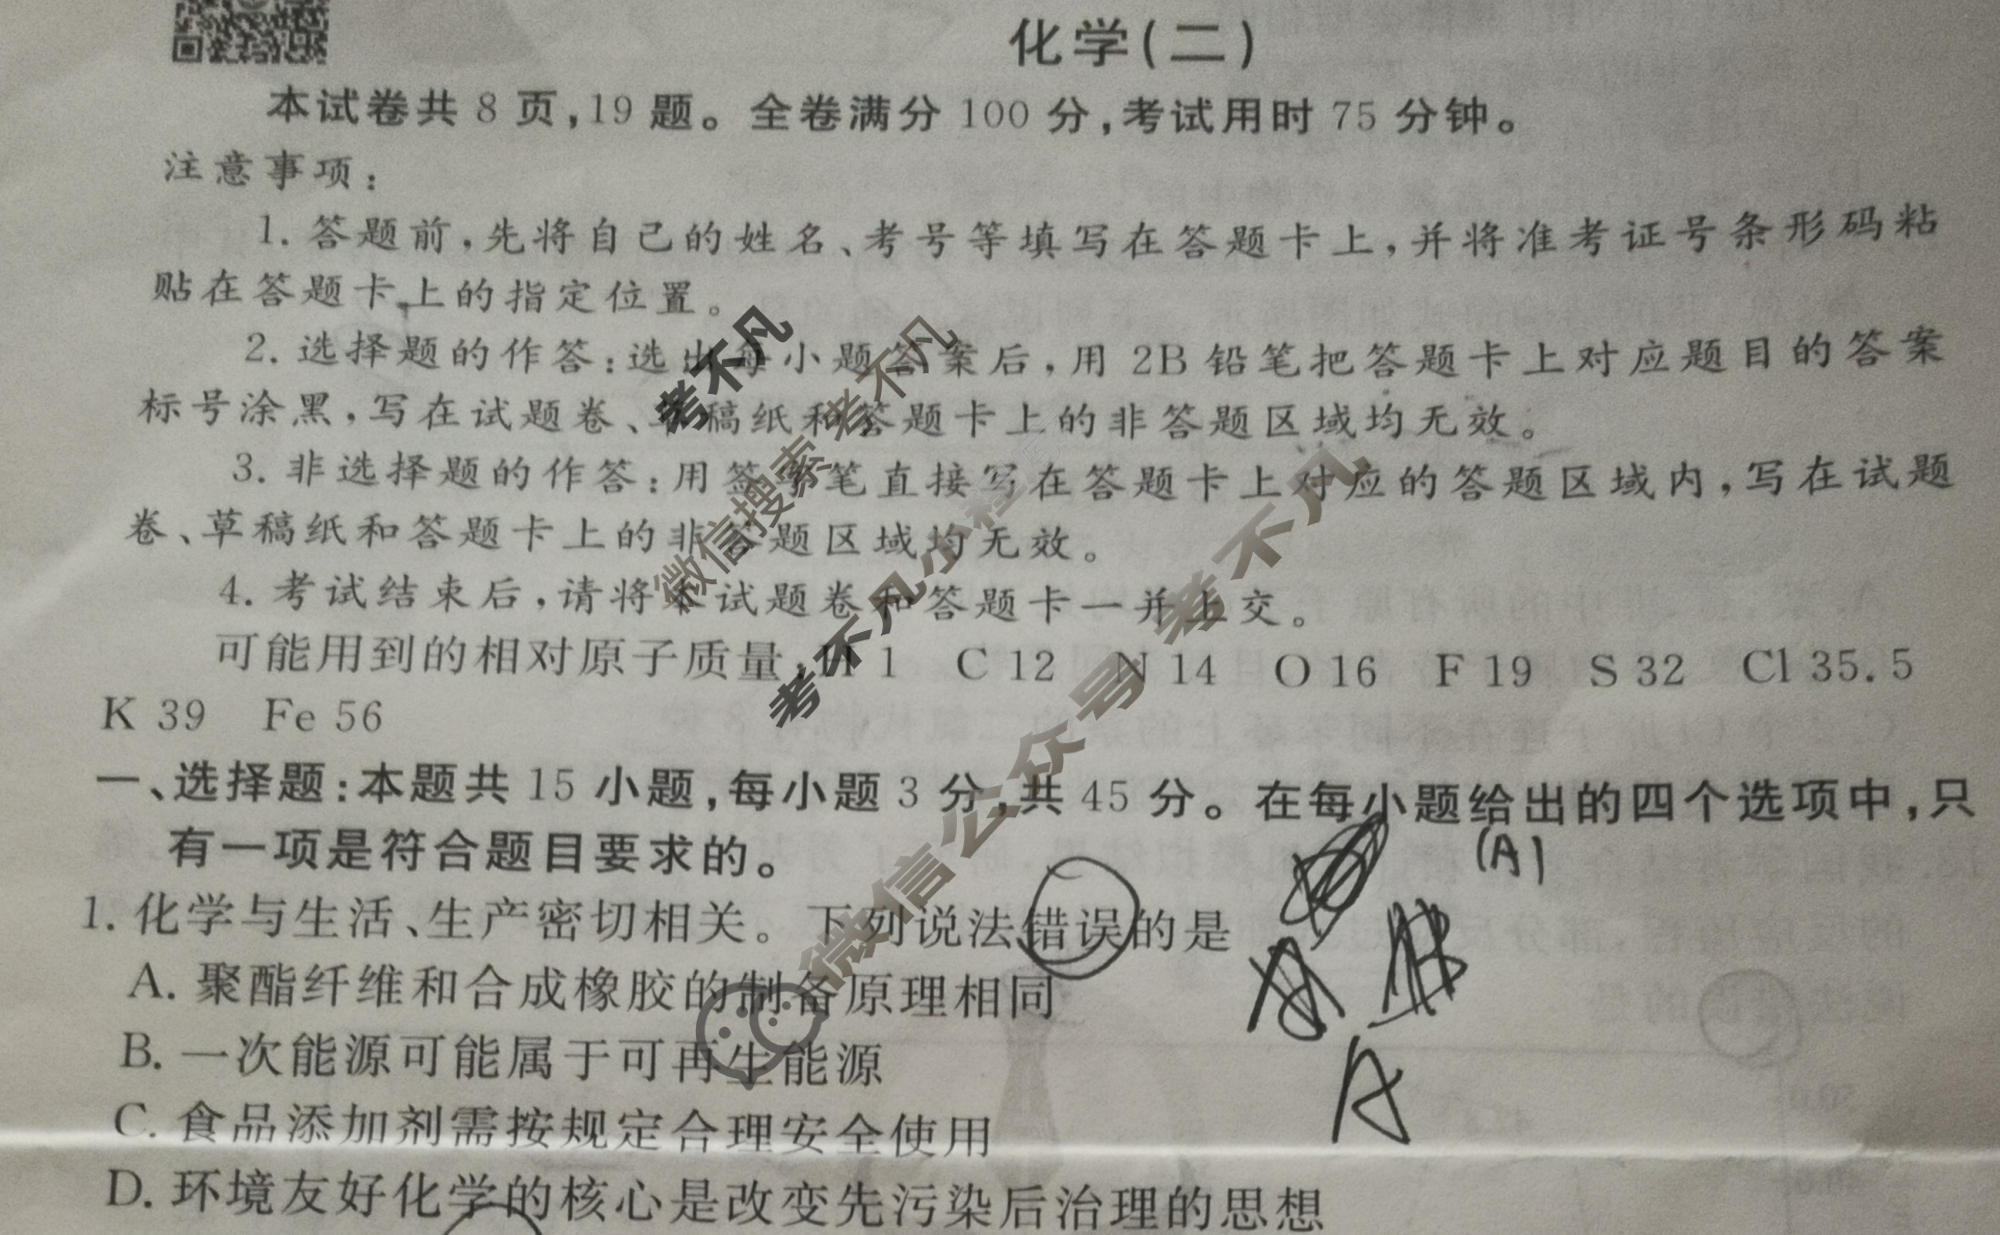 化学(二)
本试卷共8页,19题。全卷满分100分,考试用时75分钟。
注意事项:
1. 答题前,先将自己的姓名、考号等填写在答题卡上,并将准考证号条形码粘
贴在答题卡上的指定位置。
2. 选择题的作答:选出每小题答案后,用2B铅笔把答题卡上对应题目的答案
标号涂黑,写在试题卷、草稿纸和答题卡上的非答题区域均无效。
3. 非选择题的作答:用签字笔直接写在答题卡上对应的答题区域内,写在试题
卷、草稿纸和答题卡上的非答题区域均无效。
4. 考试结束后,请将本试题卷和答题卡一并上交。
可能用到的相对原子质量:H 1 C 12 N 14 O 16 F 19 S 32 Cl 35.5
K 39 Fe 56
一、选择题:本题共15小题,每小题3分,共45分。在每小题给出的四个选项中,只
有一项是符合题目要求的。
(A)
1. 化学与生活、生产密切相关。下列说法错误的是
A. 聚酯纤维和合成橡胶的制备原理相同
B. 一次能源可能属于可再生能源
A
C. 食品添加剂需按规定合理安全使用
D. 环境友好化学的核心是改变先污染后治理的思想
考不凡
微信搜索考不凡
考不凡小程序
微信公众号 考不凡